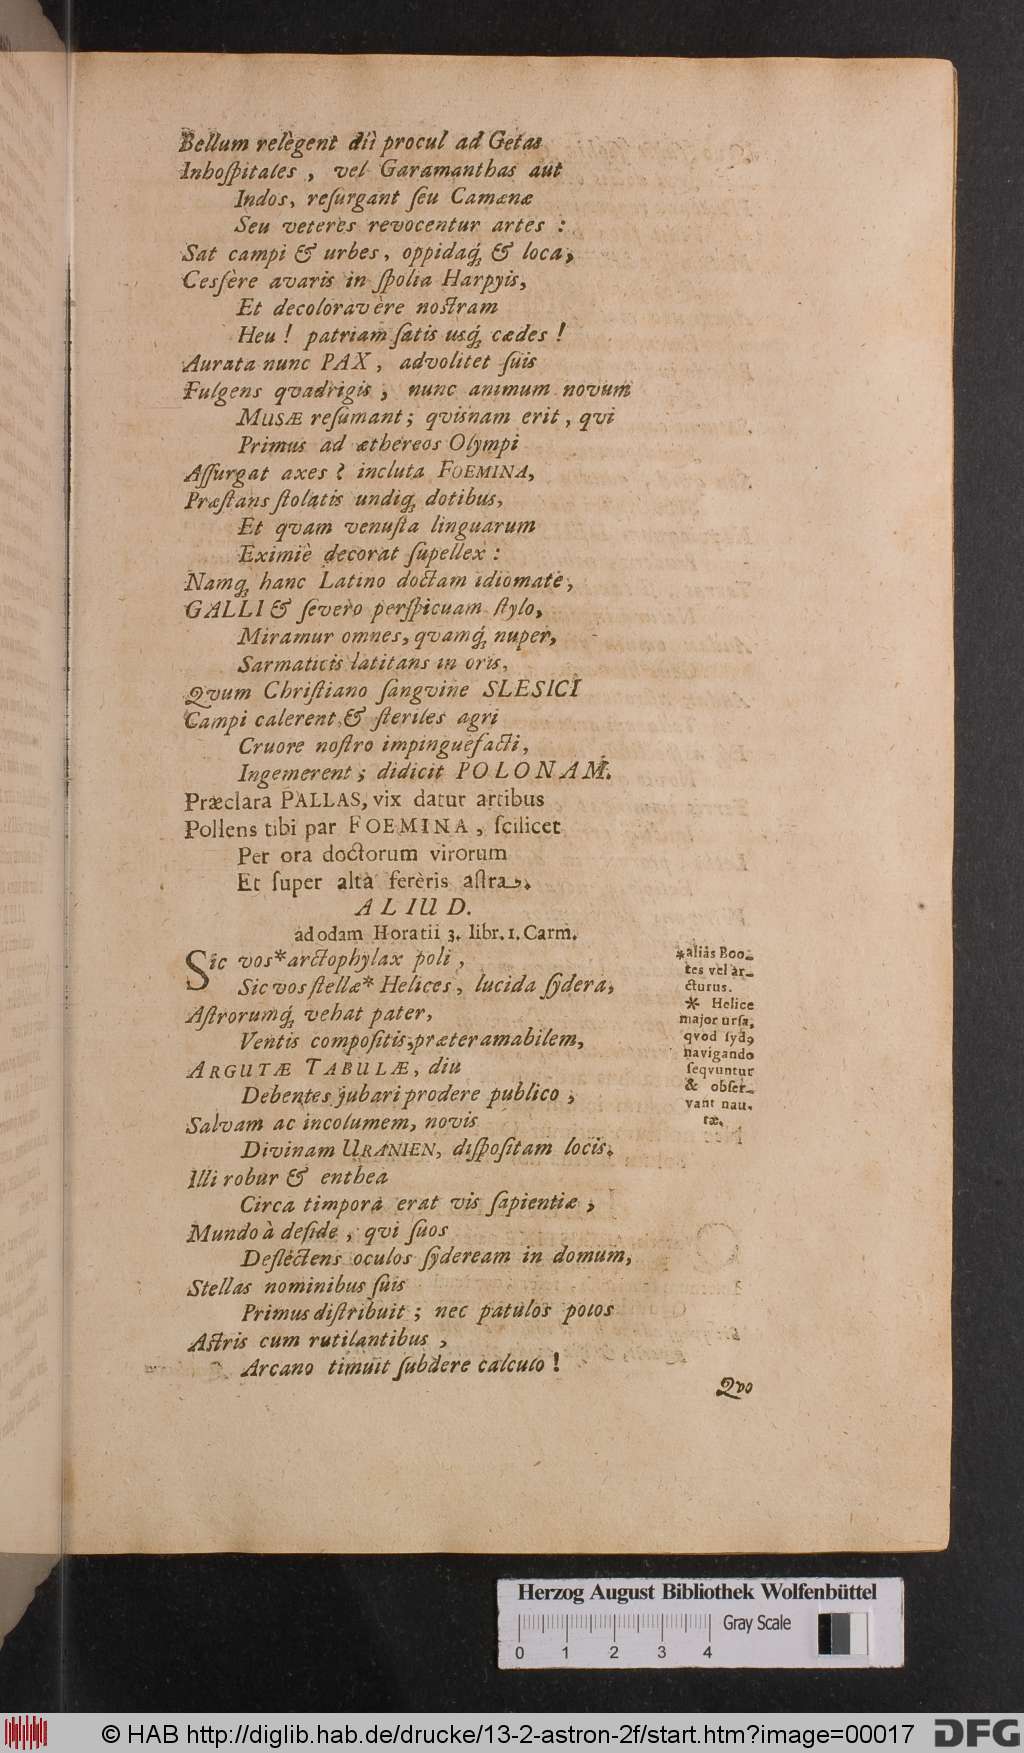 Bellum relègent dii procul ad Getas
Inhoſpitales, vel Garamanthas aut
Indos, reſurgant ſeu Camænæ
Seu veteres revocentur artes :
Sat campi & urbes, oppidaq́; & loca,
Cesſère avaris in ſpolia Harpyis,
Et decoloravère noſtram
Heu ! patriam ſatis usq́; cædes !
Aurata nunc PAX, advolitet ſuis
Fulgens qvadrigis, nunc animum novum
MUSÆ reſumant; qvisnam erit, qvi
Primus ad æthereos Olympi
Aſſurgat axes ? incluta FOEMINA,
Præſtans ſtolatis undiq; dotibus,
Et qvam venuſta linguarum
Eximiè decorat ſupellex :
Namq; hanc Latino doctam idiomate,
GALLI & ſevero perſpicuam ſtylo,
Miramur omnes, qvamq́; nuper,
Sarmaticis latitans in oris,
Qvum Chriſtiano ſangvine SLESICI
Campi calerent, & ſteriles agri
Cruore noſtro impinguefacti,
Ingemerent ; didicit POLONAM.
Præclara PALLAS, vix datur artibus
Pollens tibi par FOEMINA, ſcilicet
Per ora doctorum virorum
Et ſuper alta ferèris aſtra.
ALIUD.
ad odam Horatii 3. libr. 1. Carm.
Sic vos* arctophylax poli,
Sic vos ſtellæ* Helices, lucida ſydera,
Aſtrorumq́; vehat pater,
Ventis compoſitis, præter amabilem,
ARGUTÆ TABULÆ, diu
Debentes jubari prodere publico,
Salvam ac incolumem, novis
Divinam URANIEN, diſpoſitam locis.
Illi robur & enthea
Circa tempora erat vis ſapientiæ,
Mundo à deſide, qvi ſuos
Deflectens oculos ſyderam in domum,
Stellas nominibus ſuis
Primus diſtribuit ; nec patulos polos
Aſtris cum rutilantibus,
Arcano timuit ſubdere calculo !
*aliàs Boo-
tes vel ar-
cturus.
* Helice
major urſa,
qvod ſydꝰ
navigando
ſeqvuntur
& obſer-
vant nau-
tæ.
Qvo
Herzog August Bibliothek Wolfenbüttel
Gray Scale
0 1 2 3 4
© HAB http://diglib.hab.de/drucke/13-2-astron-2f/start.htm?image=00017
DFG